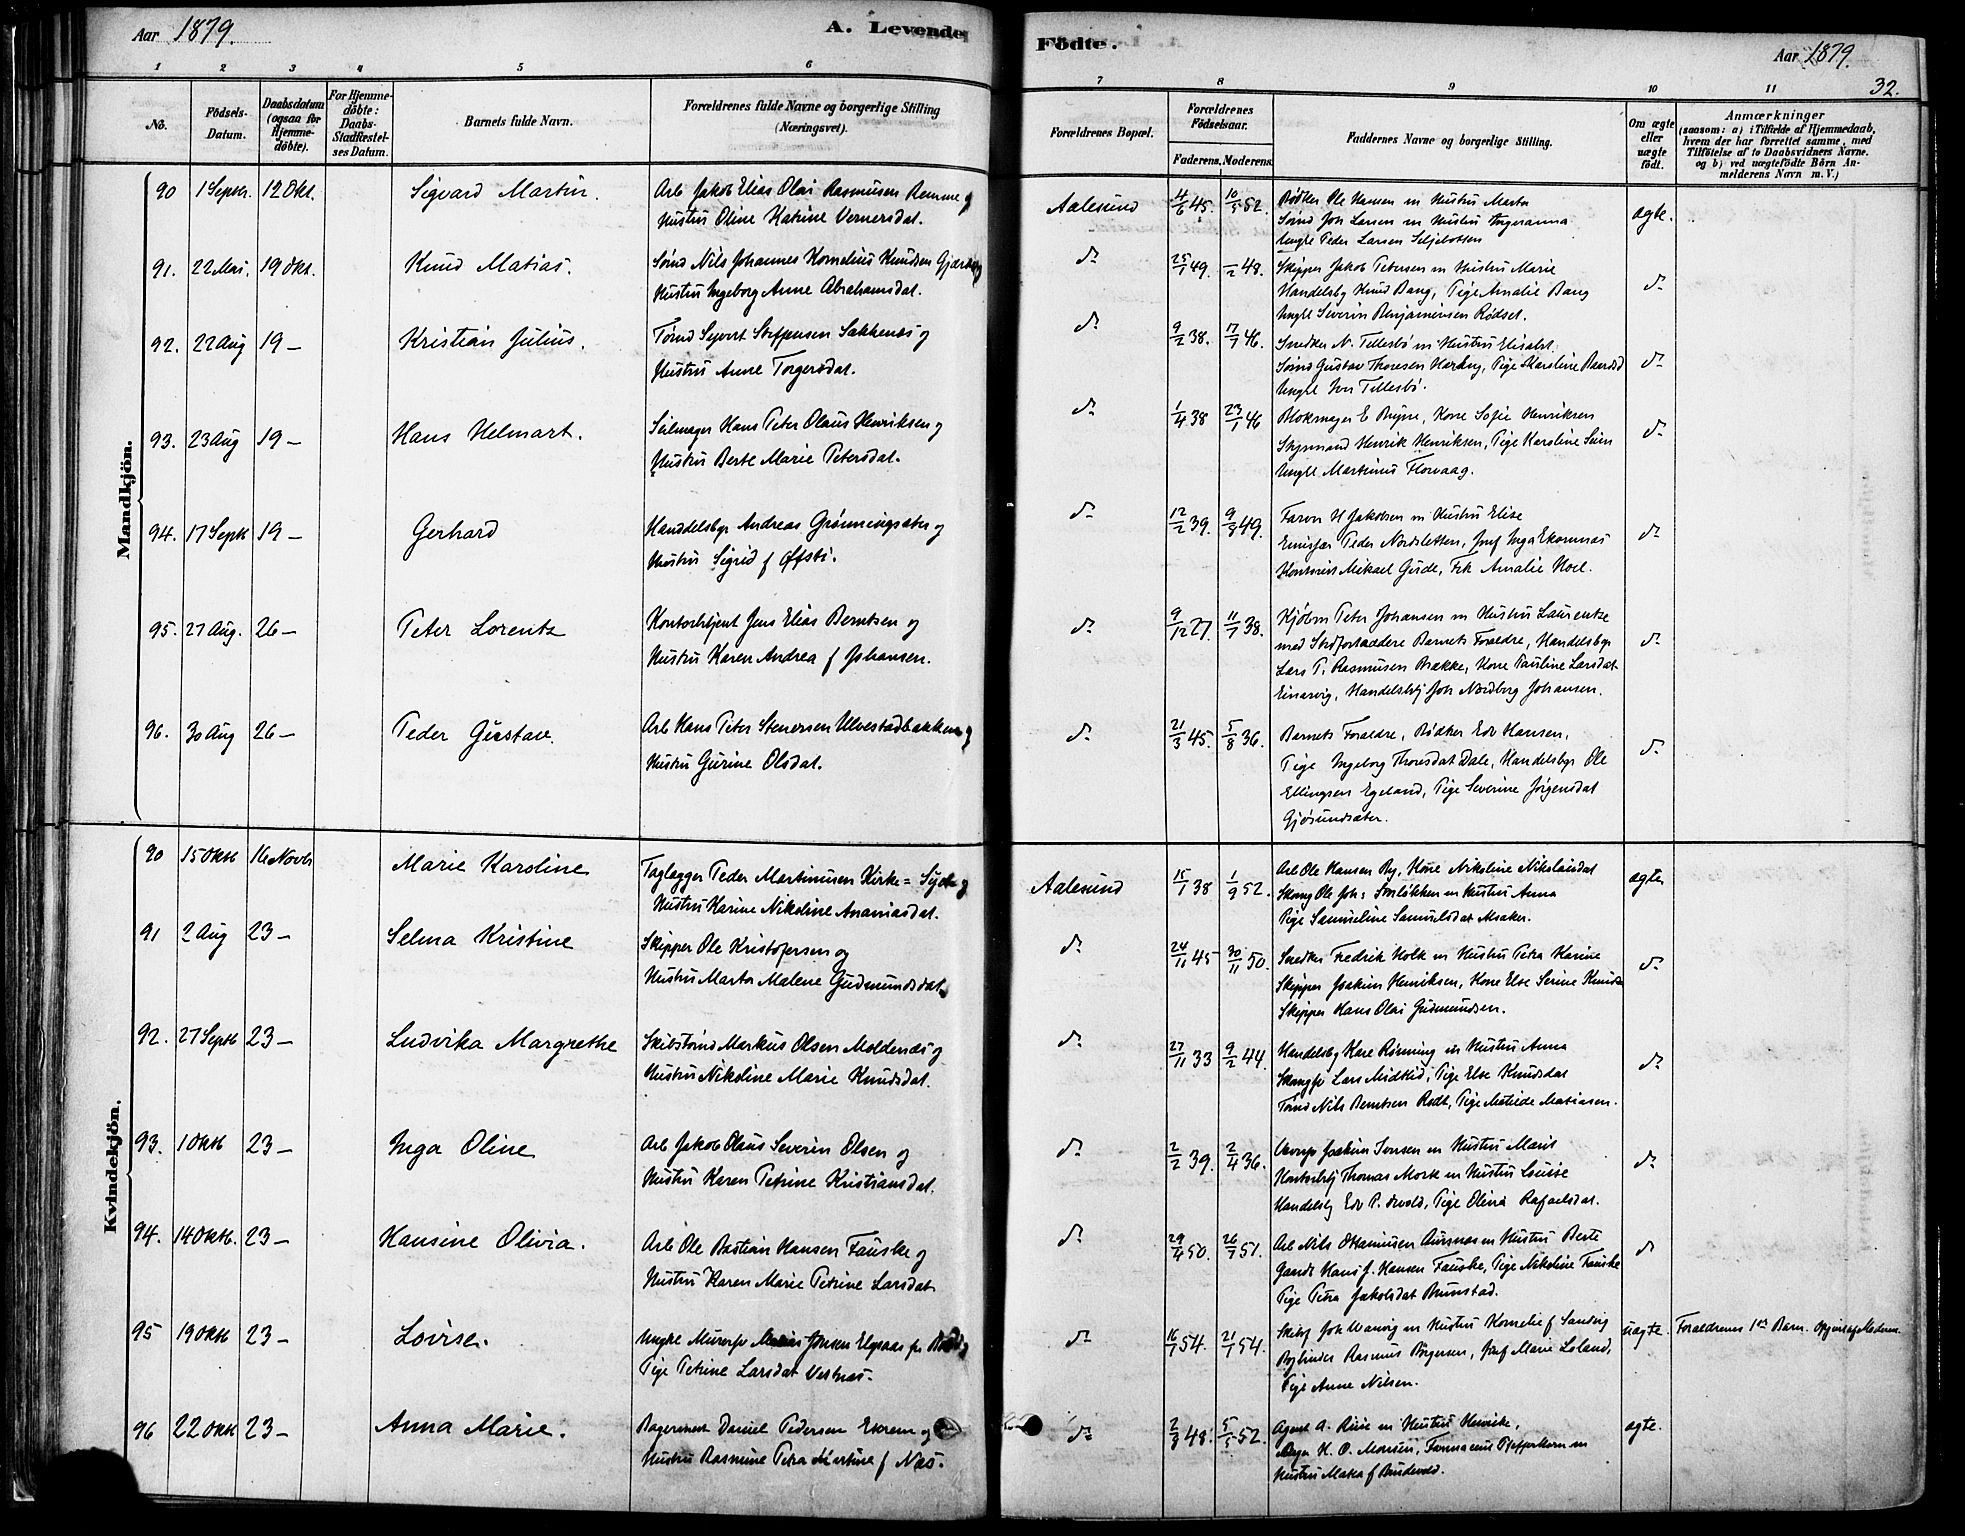 Aar 1879.
A. Levende
Födte.
Aar 1879.
32.
1 2 3 4 5 6 7 8 9 10 11
No.
Födsels-Datum.
Daabsdatum (ogsaa for Hjemme-döbte).
For Hjemme-döbte: Daabs-Stadfæstel-ses Datum.
Barnets fulde Navn.
Forældrenes fulde Navne og borgerlige Stilling (Næringsvei).
Forældrenes Bopæl.
Forældrenes Födselsaar.
Faderens. Moderens.
Faddernes Navne og borgerlige Stilling.
Om ægte eller uægte födt.
Anmærkninger
(saasom: a) i Tilfælde af Hjemmedaab, hvem der har forrettet samme, med Tilföielse af to Daabsvidners Navne. og b) ved uægtefödte Börn An-melderens Navn m. V.)
Mandkjön.
90 1 Septr. 12 Okt. Sigvard Martin. Arb Jakob Elias Olai Rasmusen Remme og
Hustru Oline Katrine Vernersdat.
Aalesund 4/6 45. 10/5 52. Bødker Ole Hansen m Hustru Marta
Joh Larsen m Hustru Ingeranna
Ungkl Peder Larsen Seljebotten
ægte.
91. 22 Mai. 19 Okt. Knud Matias. Nils Johannes Kornelius Knudsen
Hustru Ingeborg Anne Abrahamsdat.
do 25/1 49. 1/2 48. Skipper Jakob Petersen m Hustru Marie
Handelsby Knud Bang, Pige Amalie Bang
Ungkl Severin Benjaminsen Rødset.
do
92. 22 Aug 19 — Kristian Julius. Sivert Steffensen Sakkenes og
Hustru Anne Torgersdat.
do 9/2 38. 17/7 46. Snedker N. Tellesbø m Hustru Elisabet.
Gustav Thoresen Pige Karoline
Ungkl Iver Tellesbø.
do
93. 23 Aug 19 — Hans Helmart. Seilmager Hans Peter Olaus Henriksen og
Hustru Berte Marie Petersdat.
do 1/4 38 23/1 46 Blokmager E Kone Sofie Henriksen
Henrik Henriksen, Pige Karoline
Ungkl Martinus Florvaag.
do
94. 17 Septb 19 — Gerhard Handelsbgr Andreas Grønningsæter og
Hustru Sigrid f Øfsti.
do 12/2 39. 9/8 49. Farver H Jakobsen m Hustru Elise
Peder Nordsletten, Jmf Inga Ekornnæs
Kontorist Mikael Gjerde, Frk Amalie
do
95. 27 Aug. 26 — Peter Lorentz Kontorbetjent Jens Elias Berntsen og
Hustru Karen Andrea f Johansen.
do 9/12 27. 11/7 38. Kjøbm Peter Johansen m Hustru Laurentze
med Stedfortrædere Barnets Forældre, Handelsbgr
Lars P. Rasmusen Brække, Kone Pauline Larsdat
Einarvig, Handelsbtj Joh Nordberg Johansen.
do
96. 30 Aug 26 — Peder Gustav. Arb Hans Peter Stenersen Ulvestadbakken og
Hustru Gurine Olsdat.
do 21/3 45. 5/8 36. Barnets Forældre, Bødker Edv Hansen,
Pige Ingeborg Thoresdat Dale, Handelsbgr Ole
Ellingsen Egeland, Pige Severine Jørgensdat
Gjøsundsæter.
do
Kvindekjön.
90 15 Oktb 16 Novb Marie Karoline Taglægger Peder Martinusen Kirke= og
Hustru Karine Nikoline Ananiasdat.
Aalesund 15/1 38 1/9 52. Arb Ole Hansen By, Kone Nikoline Nikolaidat
Ole Joh: m Hustru Anna
Pige Samueline Samuelsdat Alsaker.
ægte.
91 2 Aug 23 — Selma Kristine Skipper Ole Kristofersen og
Hustru Marta Malene Gudmundsdat.
do 24/11 45 30/11 50. Snedker Fredrik Holk m Hustru Petra Karine
Skipper Joakim Henriksen, Kone Else Serine
Skipper Hans Olai Gudmundsen.
do
92. 27 Septb 23 — Ludvika Margrethe Skibstmd Markus Olsen Moldenæs og
Hustru Nikoline Marie Knudsdat.
do 27/11 33 9/2 44. Handelsbg Kare Rønning m Hustru Anna
Lars Midtlid, Pige Else Knudsdat
Tømd Nils Berntsen Rodt, Pige Matilde Matiasen.
do
93. 1 Oktb 23 — Inga Oline Arb Jakob Olaus Severin Olsen og
Hustru Karen Petrine Kristiansdat.
do 2/2 39. 2/4 36. Joakim m Hustru Marie
Kontorbtj Thomas Mork m Hustru Louise
Handelsbtj Edv P. Pige Olina Rafaelsdat.
do
94. 14 Oktb. 23 — Hansine Olivia. Arb Ole Bastian Hansen Fauske og
Hustru Karen Marie Petrine Larsdat
do 29/4 50. 26/7 51. Arb Nils Aursnæs m Hustru Berte
Hans J. Hansen Fauske, Pige Nikoline Fauske
Pige Petra Jakobsdat Brunstad.
do
95 19 Oktb 23 — Lovise. Ungkl Jonsen fr
Pige Petrine Larsdat Vestnæs.
do 16/1 54. 21/1 54. Joh m Hustru Kornelie f Sandvig
Rasmus Børgersen, Jmf Marie Leland,
Pige Anne Nilsen.
uægte. Forældrenes 1ste Barn. Opgivet af Moderen.
96 22 Oktb 23 — Anna Marie. Bagermest Daniel Pedersen Ekrem og
Hustru Rasmine Petra Martine f Næs.
do 2/8 48. 5/5 52. Agent A. m Hustru Henrike,
H. O. Monsen, Farmaceut Pfefferkorn m
Hustru f Brudevold.
ægte.